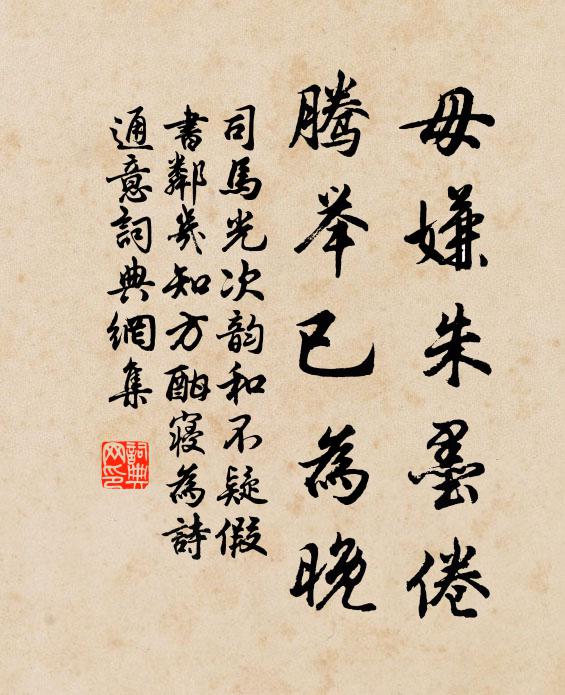 毋嫌朱墨倦
腾举已為晚
司馬光次韵和不疑假
書鄰幾知方酣寝為詩
通意詞典網集
詞典网印